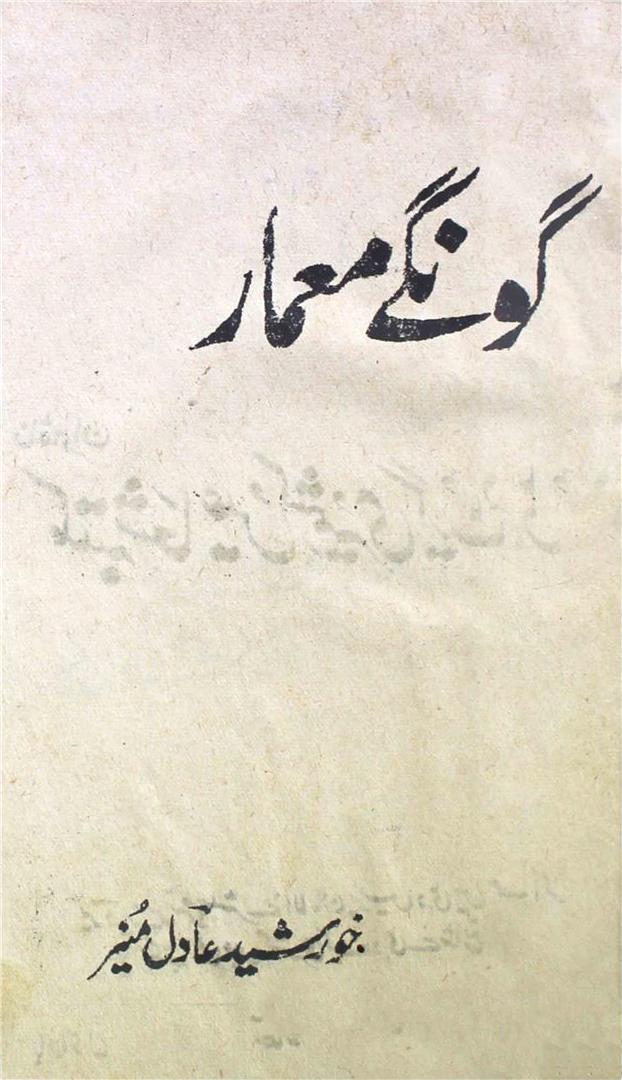 گونگے معمار
خورشید عادل منیر